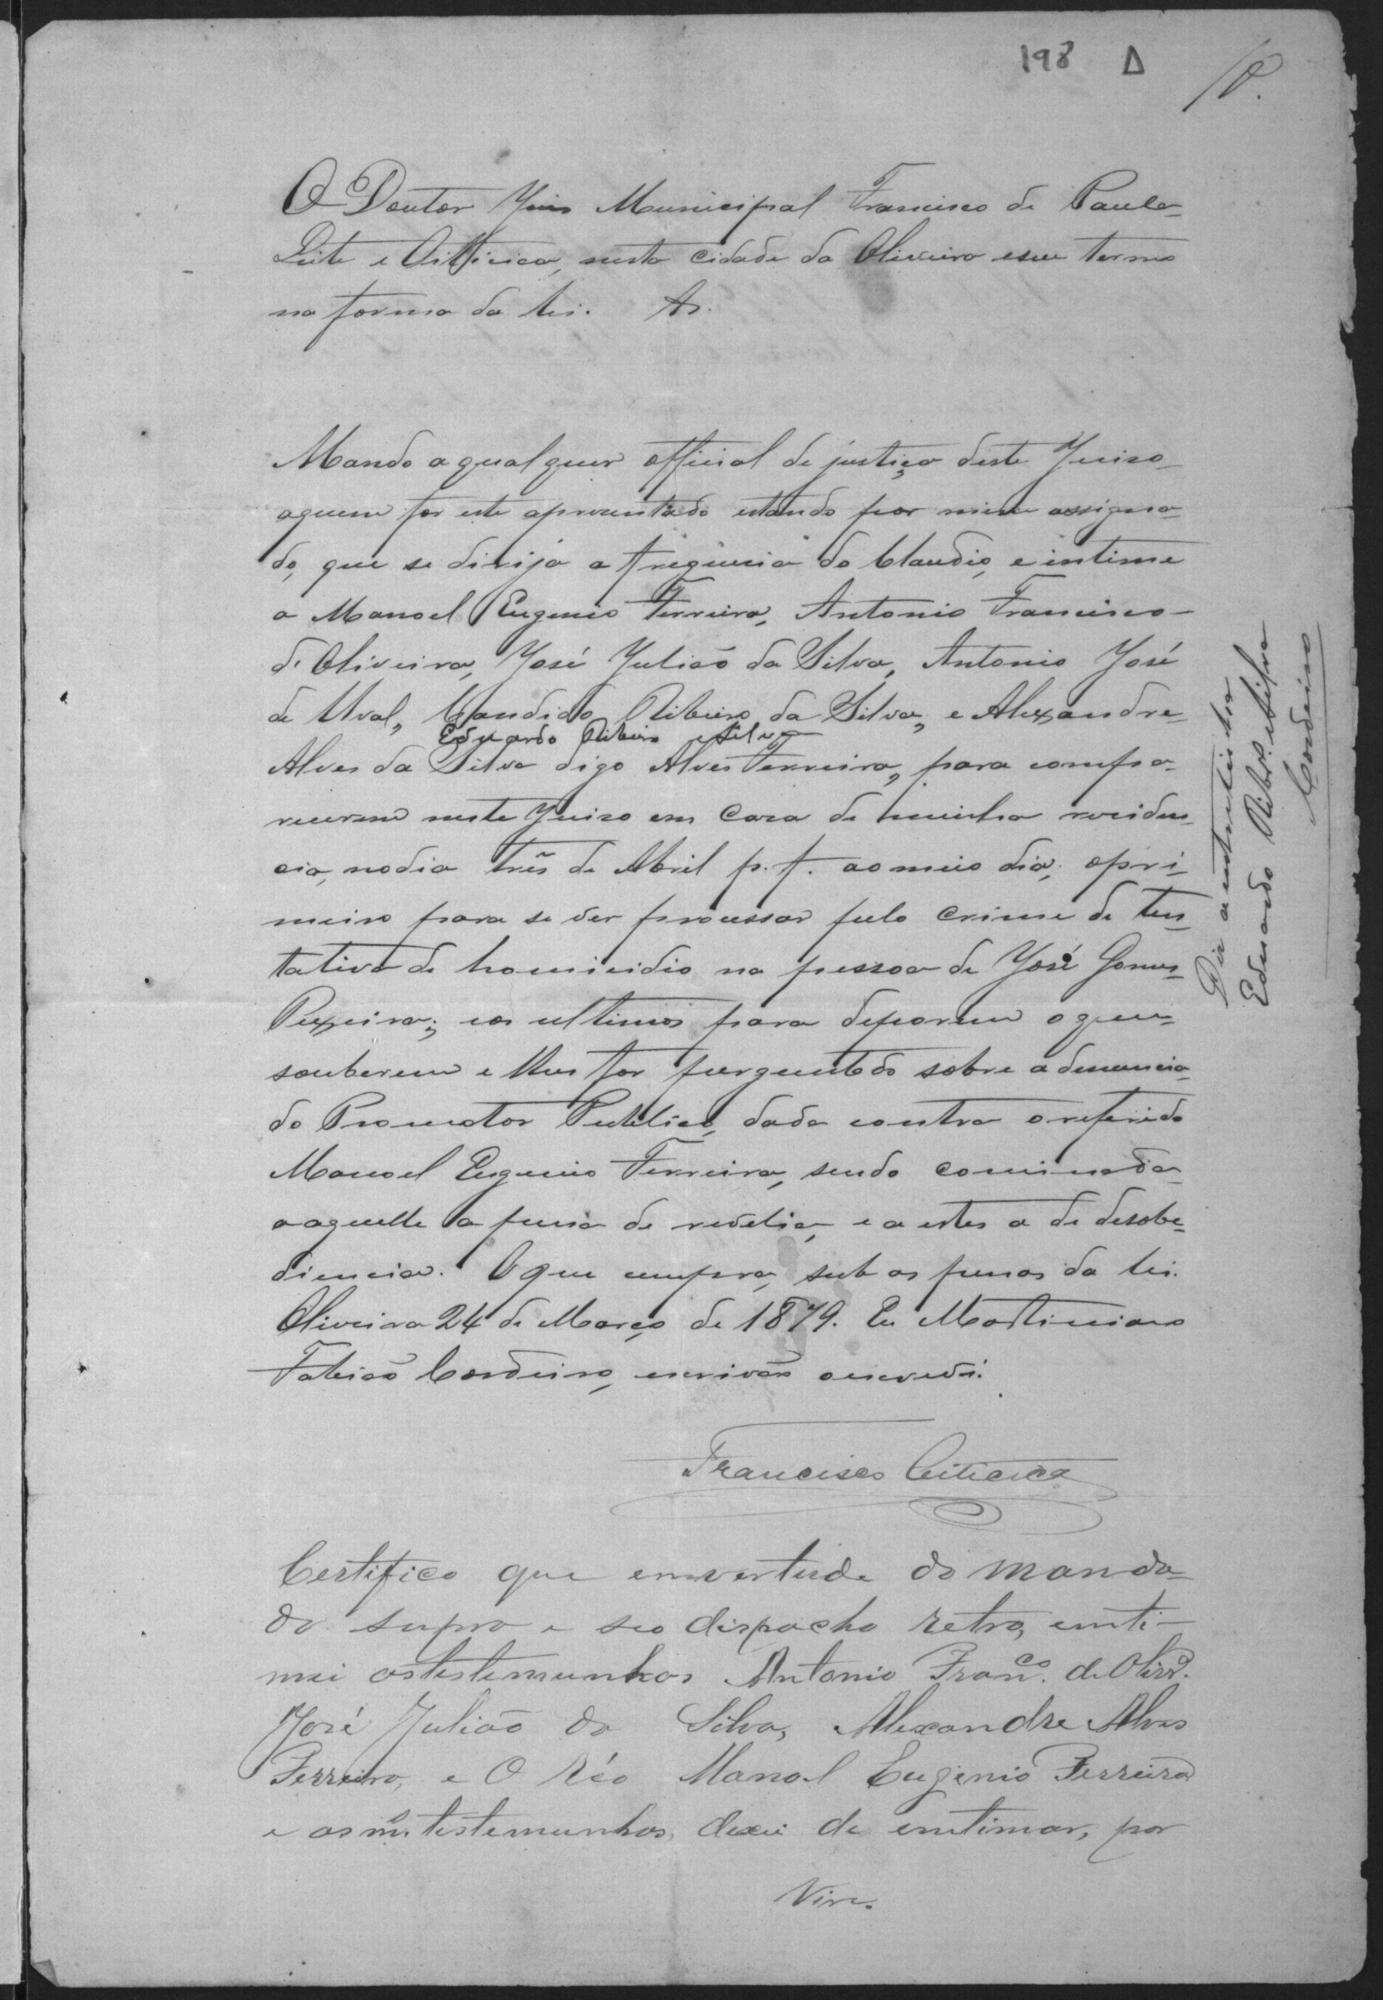 198 Δ 10.
O Doutor Juis Municipal Francisco de Paula
Leite e Oiticica, nesta cidade da Oliveira e seu termo
na forma da lei. &.
Mando a qualquer official de justiça deste Juiso
a quem for este apresentado estando por mim assigna-
do, que se dirija a freguesia do Claudio, e intime
a Manoel Eugenio Ferreira, Antonio Francisco
de Oliveira, José Julião da Silva, Antonio José
de Candido Ribeiro da Silva, e Alexandre
Eduardo Ribeiro e Silva
Alves da Silva digo Alves Ferreira, para compa-
recerem neste Juiso em casa de minha residen-
cia, no dia três de Abril p. f. ao meio dia; o pri-
meiro para se ver processar pelo crime de ten-
tativa de homicidio na pessoa de José Gomes
Pexeira; e os ultimos para deporem o que
souberem e lhes for perguntado sobre a denuncia
do Promotor Publico, dada contra o referido
Manoel Eugenio Ferreira, sendo cominada
a aquelle a pena de revelia, e a estes a de desobe-
diencia. O que cumpra, sub as penas da lei.
Oliveira 24 de Março de 1879. Eu Martiniano
Fabião Cordeiro, escrivão o escrevi.
Francisco Oiticica
Certifico que em vertude do manda-
do supra e seo dispacho retro, enti-
mei as testemunhas Antonio Franco. de Olivra.
José Julião da Silva, Alexandre Alves
Ferreira, e O Réo Manoel Eugenio Ferreira
e as ms. testemunhas dexei de entimar, por
Vire.
Diz a entrelinha
Eduardo Ribro. e Silva
Cordeiro